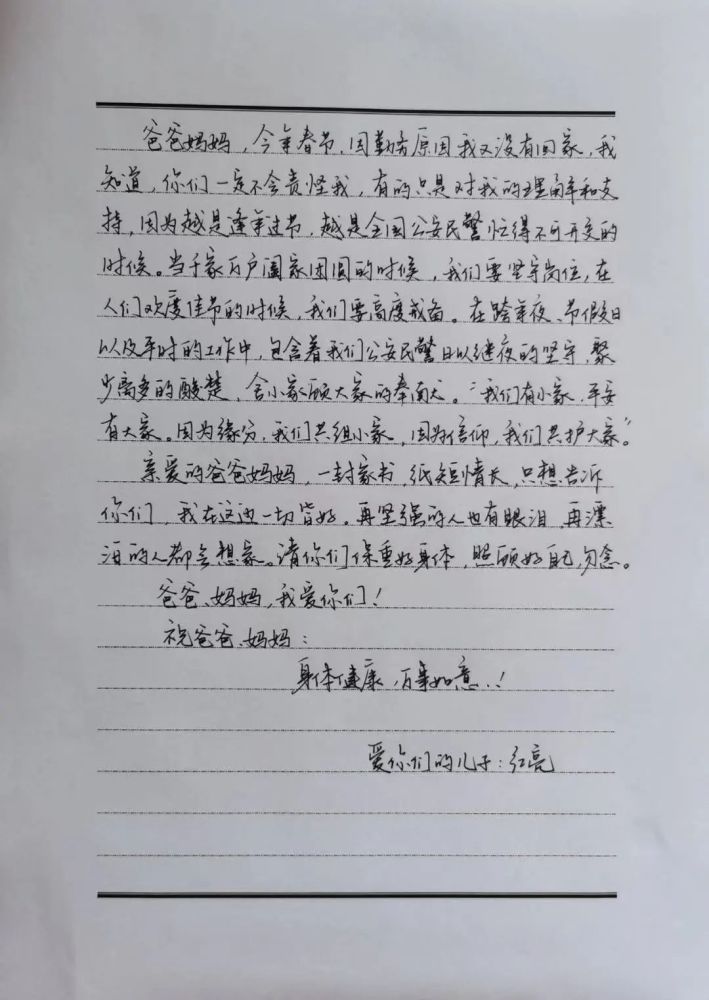 爸爸妈妈，今年春节，因勤务原因我又没有回家，我
知道，你们一定不会责怪我，有的只是对我的理解和支
持，因为越是逢年过节，越是全国公安民警忙得不可开交的
时候。当千家万户阖家团圆的时候，我们要坚守岗位，在
人们欢度佳节的时候，我们要高度戒备。在跨年夜、节假日
以及平时的工作中，包含着我们公安民警日以继夜的坚守，聚
少离多的酸楚，舍小家顾大家的奉献。“我们有小家，平安
有大家。因为缘分，我们共组小家，因为信仰，我们共护大家。”
亲爱的爸爸妈妈，一封家书，纸短情长，只想告诉
你们，我在这边一切皆好。再坚强的人也有眼泪，再漂
泊的人都会想家。请你们保重好身体，照顾好自己，勿念。
爸爸、妈妈，我爱你们！
祝爸爸、妈妈：
身体健康，万事如意！
爱你们的儿子：红亮